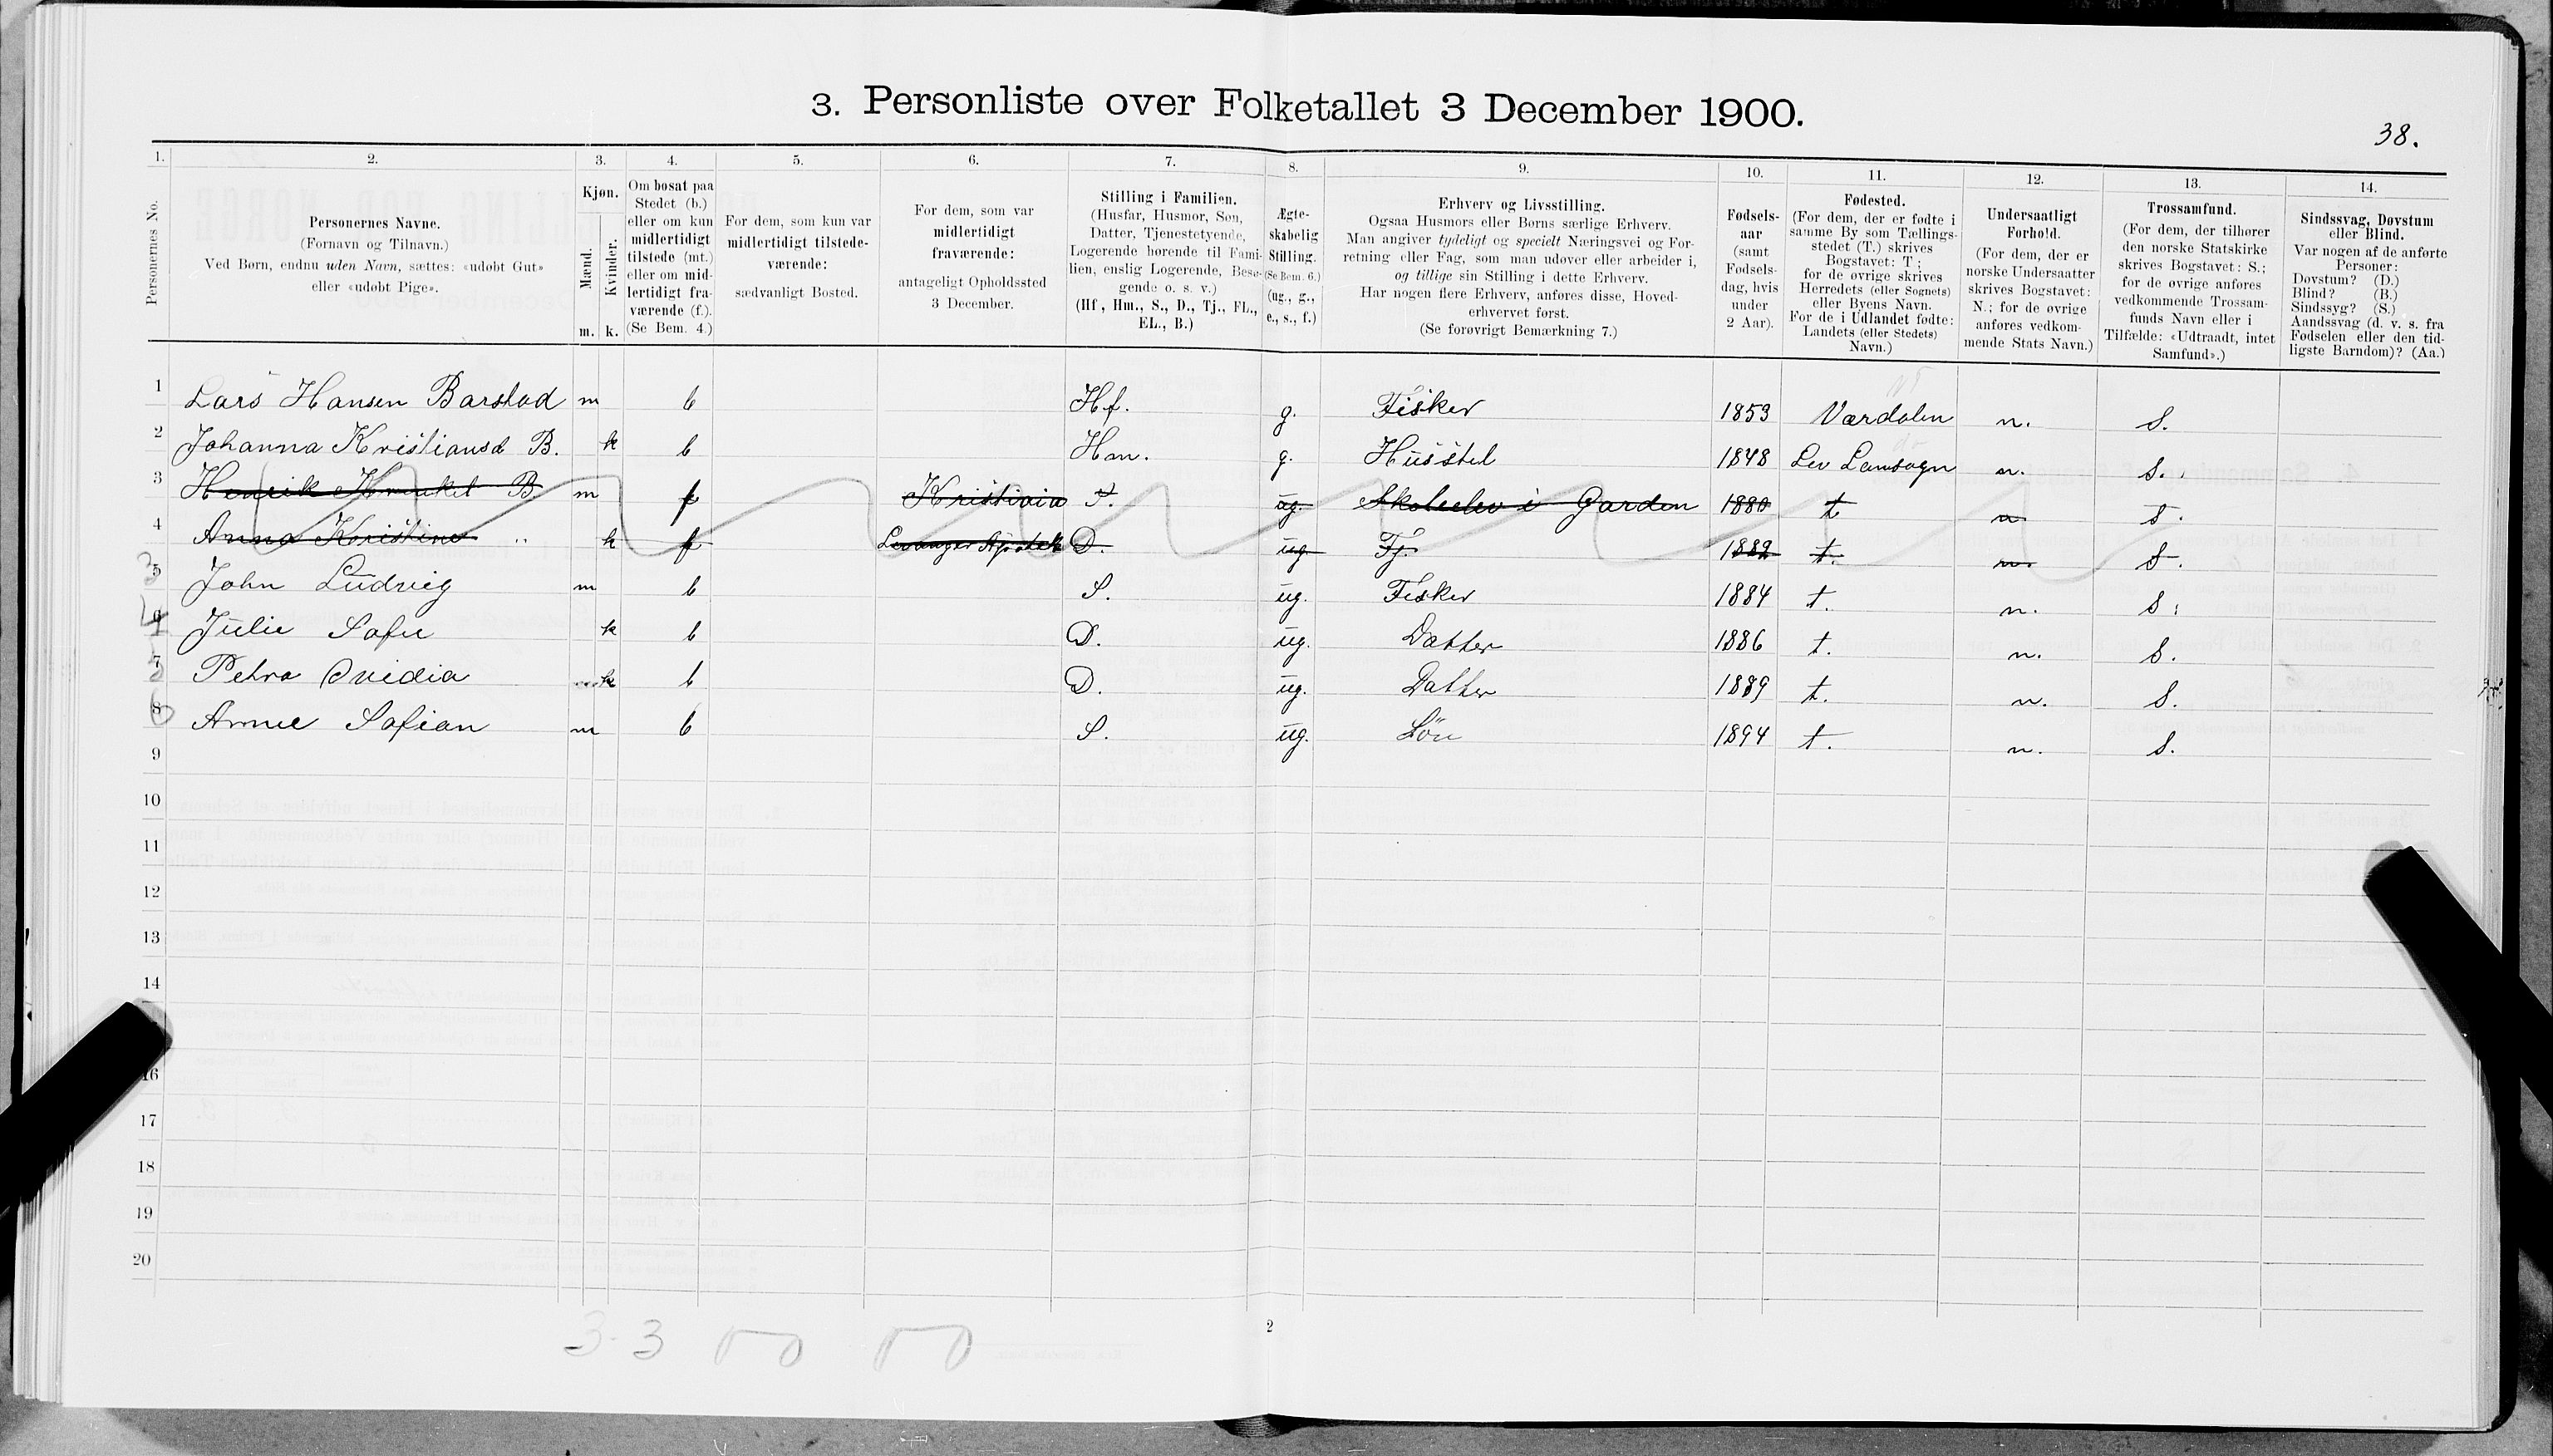 3. Personliste over Folketallet 3 December 1900.
38.
1. 2. 3. 4. 5. 6. 7. 8. 9. 10. 11. 12. 13. 14.
Personernes No.
Personernes Navne.
(Fornavn og Tilnavn.)
Ved Børn, endnu uden Navn, sættes: «udøbt Gut»
eller «udøbt Pige».
Kjøn.
Mænd. Kvinder.
m. k.
Om bosat paa
Stedet (b.)
eller om kun
midlertidigt
tilstede (mt.)
eller om mid-
lertidigt fra-
værende (f.).
(Se Bem. 4.)
For dem, som kun var
midlertidigt tilstede-
værende:
sædvanligt Bosted.
For dem, som var
midlertidigt
fraværende:
antageligt Opholdssted
3 December.
Stilling i Familien.
(Husfar, Husmor, Søn,
Datter, Tjenestetyende,
Logerende hørende til Fami-
lien, enslig Logerende, Besø-
gende o. s. v.)
(Hf, Hm., S., D., Tj., FL.,
EL., B.)
Ægte-
skabelig
Stilling.
(Se Bem. 6.)
(ug., g.,
e., s., f.)
Erhverv og Livsstilling.
Ogsaa Husmors eller Børns særlige Erhverv.
Man angiver tydeligt og specielt Næringsvei og For-
retning eller Fag, som man udøver eller arbeider i,
og tillige sin Stilling i dette Erhverv.
Har nogen flere Erhverv, anføres disse, Hoved-
erhvervet først.
(Se forøvrigt Bemærkning 7.)
Fødsels-
aar
(samt
Fødsels-
dag, hvis
under
2 Aar).
Fødested.
(For dem, der er fødte i
samme By som Tællings-
stedet (T.) skrives
Bogstavet: T;
for de øvrige skrives
Herredets (eller Sognets)
eller Byens Navn.
For de i Udlandet fødte:
Landets (eller Stedets)
Navn.)
Undersaatligt
Forhold.
(For dem, der er
norske Undersaatter
skrives Bogstavet:
N.; for de øvrige
anføres vedkom-
mende Stats Navn.)
Trossamfund.
(For dem, der tilhører
den norske Statskirke
skrives Bogstavet: S.;
for de øvrige anføres
vedkommende Trossam-
funds Navn eller i
Tilfælde: «Udtraadt, intet
Samfund».)
Sindssvag, Døvstum
eller Blind.
Var nogen af de anførte
Personer:
Døvstum? (D.)
Blind? (B.)
Sindssyg? (S.)
Aandssvag (d. v. s. fra
Fødselen eller den tid-
ligste Barndom)? (Aa.)
1 Lars Hansen Barstad m b Hf. g. Fisker 1853 Værdalen n. S.
2 Johanna Kristiansd B. k b Hm. g. Husstel 1848 Lev Landsogn n. S.
3 Henrik B. m f Kristiania S. ug. Skoleelev i Garden 1880 t n S.
4 Anna Kristine " k f Levanger Apotek D. ug Tj. 1882 t. n. S.
5 3 John Ludvig m b S. ug. Fisker 1884 t. n. S.
6 4 Julie Sofie k b D. ug. Datter 1886 t. n. S.
7 5 Petra Ovidia k b D. ug. Datter 1889 t. n. S.
8 6 Arnue Sofian m b S. ug. Søn 1894 t. n. S.
9
10
11
12
13
14
16
17
18
19
20
3-3
2